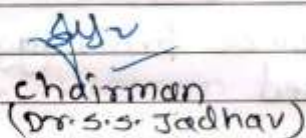 chairman
(Dr. S. S. Jadhav)